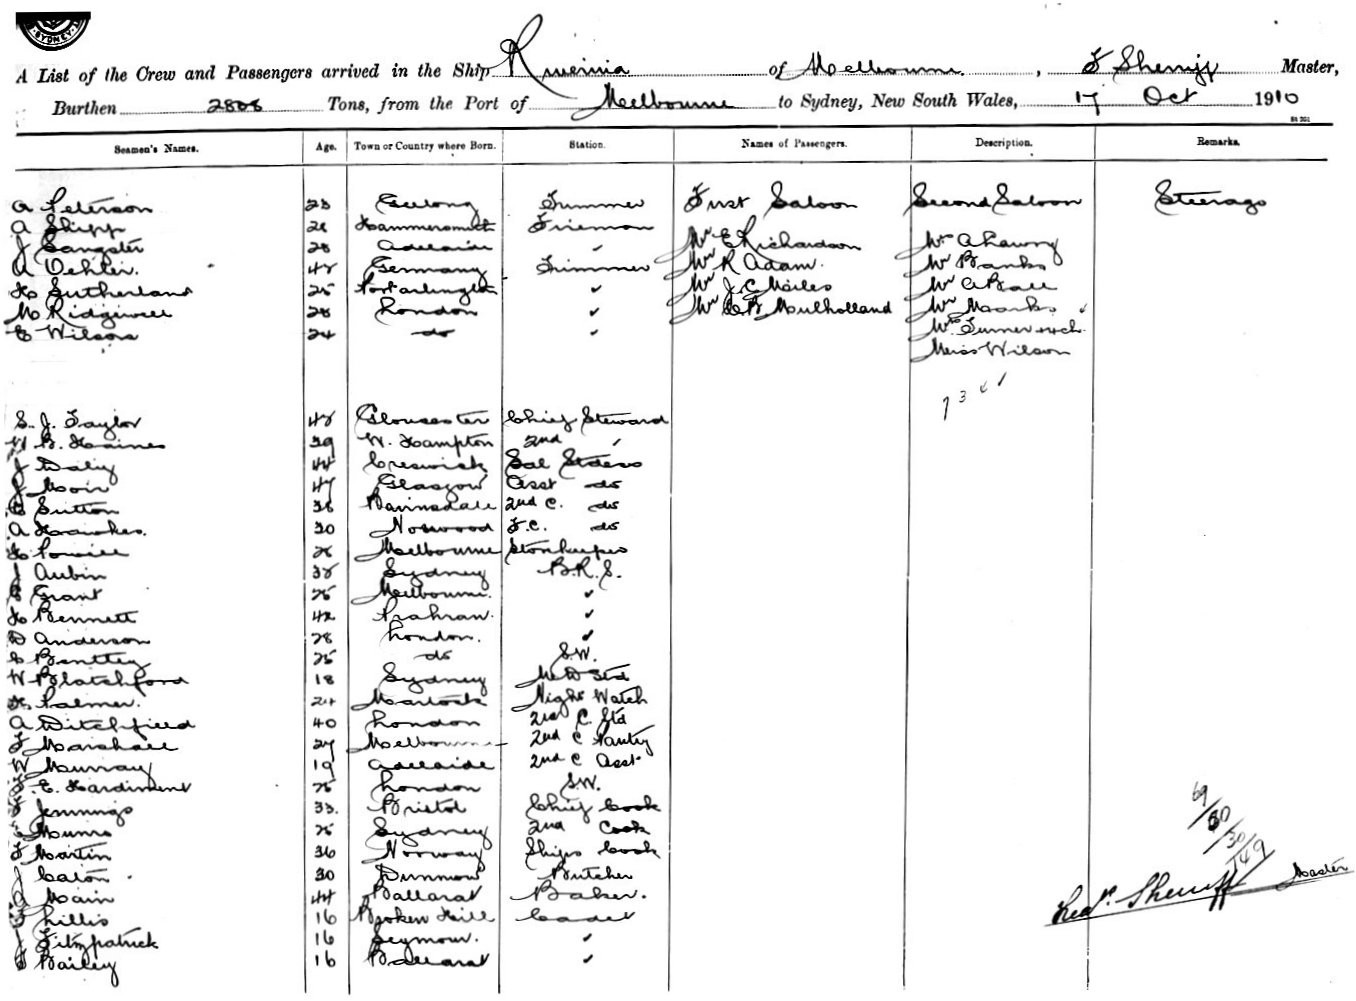 SYDNEY
A List of the Crew and Passengers arrived in the Ship of Melbourne, F Sherriff Master,
Burthen 2808 Tons, from the Port of Melbourne to Sydney, New South Wales, 17 Oct 1910
Seamen's Names. Age. Town or Country where Born. Station. Names of Passengers. Description. Remarks.
A Peterson 28 Geelong Trimmer First Saloon Second Saloon Steerage
A Shipp Hammersmith Fireman
J Sangster 28 Adelaide " Mr E Richardson
A Oehler. 48 Germany Trimmer Mr R Adam. Mr Banks
H Sutherland 25 Portarlington " Mr J. C. Mr A Ball
M Ridgwell 28 London " Mr Mulholland Mr Marks
E Wilson 24 do " Mrs Turner & ch.
Miss Wilson
7 3
S. J. Taylor 48 Gloucester Chief Steward
W B. Haines 39 W. Hampton 2nd "
J Daly 44 Creswick Sal
J Moir 47 Glasgow Asst do
Sutton 38 Bairnsdale 2nd C. do
A Hawkes. 30 Norwood F.C. do
H Powell Melbourne Storekeeper
J Aubin 38 Sydney B.R.S.
Grant 25 Melbourne. "
H Bennett 42 Prahran. "
D Anderson 28 London. "
Bentley 25 do S.W.
W Blatchford 18 Sydney
H Palmer. 24 Night Watch
A Ditchfield 40 London 2nd C. Std
F Marshall 27 Melbourne 2nd C Pantry
W Murray 19 Adelaide 2nd C Asst.
F. E. Hardiment 25 London S.W.
F Jennings 33. Bristol Chief Cook
Munro 25 Sydney 2nd Cook
F Martin 36 Norway Ships Cook
J Caton 30 Dunmow Butcher
Main 44 Ballarat Baker.
Lillis 16 Broken Hill Cadet
J Fitzpatrick 16 Seymour. "
Bailey 16 Ballarat "
69/
30/
149
Fredk. Sherriff Master